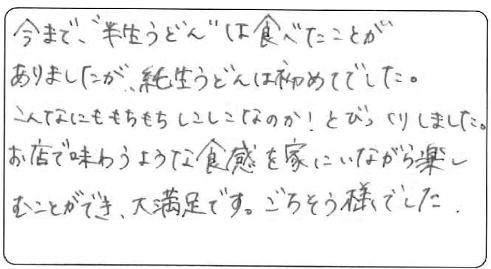 今まで、"半生うどん"は食べたことが
ありましたが、純生うどんは初めてでした。
こんなにももちもちしこしこなのか！とびっくりしました。
お店で味わうような食感を家にいながら楽し
むことができ、大満足です。ごちそう様でした.